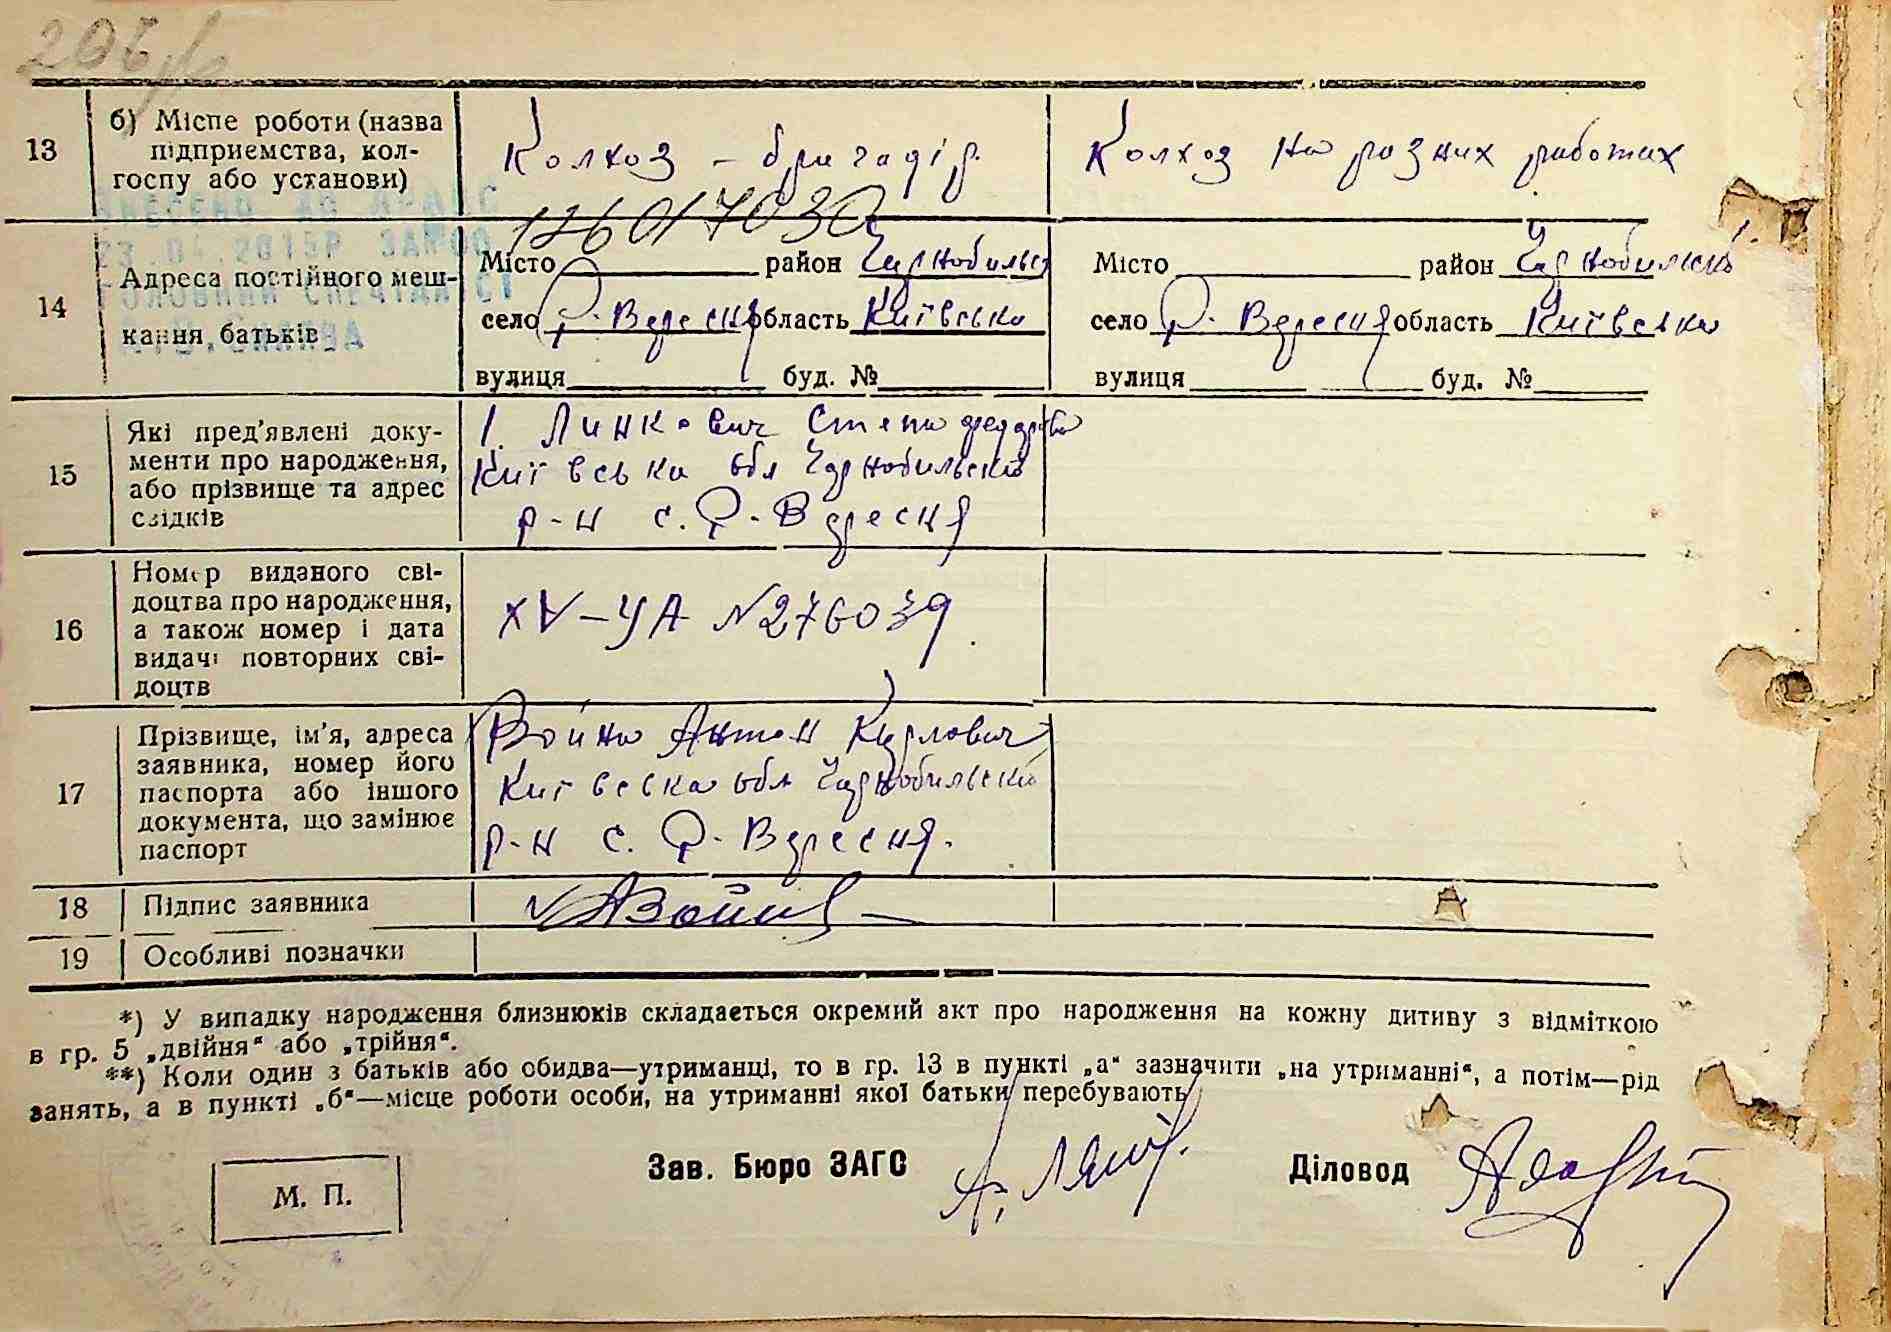 206
13
б) Місце роботи (назва
підприємства, кол-
госпу або установи)
Колхоз – бригадір.
Колхоз на разних работах
ВНЕСЕНО ДО ДРАЦС
12601703
14
Адреса постійного меш-
кання батьків
Місто район Чернобильск
село Р. Вересня область Київська
вулиця буд. №
Місто район Чернобильск
село Р. Вересня область Київська
вулиця буд. №
15
Які пред'явлені доку-
менти про народження,
або прізвище та адрес
свідків
1. Линкевич Степа
Київська обл Чернобильский
р-н с. Р. Вересня
16
Номер виданого сві-
доцтва про народження,
а також номер і дата
видачі повторних сві-
доцтв
XV–УА №276039
17
Прізвище, ім'я, адреса
заявника, номер його
паспорта або іншого
документа, що замінює
паспорт
Война Антон Карлович
Київська обл Чернобильский
р-н с. Р. Вересня.
18
Підпис заявника
АВойн
19
Особливі позначки
*) У випадку народження близнюків складається окремий акт про народження на кожну дитину з відміткою
в гр. 5 „двійня“ або „трійня“.
**) Коли один з батьків або обидва—утриманці, то в гр. 13 в пункті „а“ зазначити „на утриманні“, а потім—рід
занять, а в пункті „б“—місце роботи особи, на утриманні якої батьки перебувають
М. П.
Зав. Бюро ЗАГС
Діловод